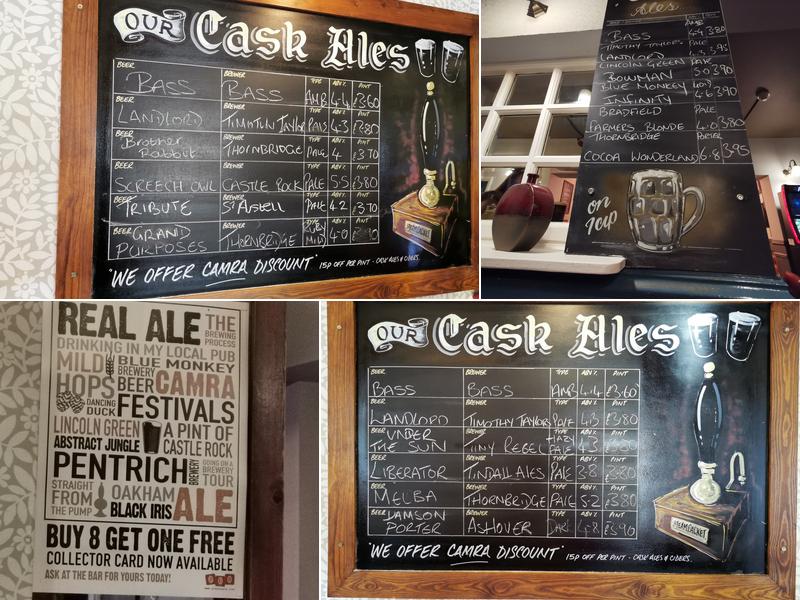 OUR Cask Ales
BEER BREWER TYPE ABV% PINT
BASS BASS AMB 4.4 £3.60
BEER BREWER TYPE ABV% PINT
LANDLORD TIMOTHY TAYLOR PALE 4.3 £3.80
BEER BREWER TYPE ABV% PINT
Brother Rabbit THORNBRIDGE PALE 4 £3.70
BEER BREWER TYPE ABV% PINT
SCREECH OWL CASTLE ROCK PALE 5.5 £3.80
BEER BREWER TYPE ABV% PINT
TRIBUTE ST AUSTELL PALE 4.2 £3.70
BEER BREWER TYPE ABV% PINT
GRAND PURPOSES THORNBRIDGE RUBY MILD 4.0
"WE OFFER CAMRA DISCOUNT" 15P OFF PER PINT - CASK ALES & CIDERS.
Ales
AMB
BASS 4.4 3.80
TIMOTHY TAYLORS PALE
LANDLORD 3.95
LINCOLN GREEN PALE
BOWMAN 5.0 3.90
BLUE MONKEY
INFINITY 4.6 3.90
BRADFIELD PALE
FARMERS BLONDE 4.0 3.80
THORNBRIDGE PORTER
COCOA WONDERLAND 6.8 3.95
on
Tap
REAL ALE THE
BREWING
PROCESS
DRINKING IN MY LOCAL PUB
MILD BLUE MONKEY
BREWERY
HOPS BEER CAMRA
DANCING
DUCK FESTIVALS
LINCOLN GREEN A PINT OF
ABSTRACT JUNGLE CASTLE ROCK
PENTRICH BREWERY GOING ON A
BREWERY
TOUR
STRAIGHT
FROM OAKHAM ALE
THE PUMP BLACK IRIS
BUY 8 GET ONE FREE
COLLECTOR CARD NOW AVAILABLE
ASK AT THE BAR FOR YOURS TODAY!
OUR Cask Ales
BEER BREWER TYPE ABV% PINT
BASS BASS AMB 4.4 £3.60
BEER BREWER TYPE ABV% PINT
LANDLORD TIMOTHY TAYLOR PALE 4.3 £3.80
BEER BREWER TYPE ABV% PINT
UNDER THE SUN TINY REBEL HAZY PALE
BEER BREWER TYPE ABV% PINT
LIBERATOR TINDALL ALES PALE 3.8
BEER BREWER TYPE ABV% PINT
MELBA THORNBRIDGE PALE 5.2 £3.80
BEER BREWER TYPE ABV% PINT
DAMSON PORTER ASHOVER DARK 4.8 £3.90
STEAMPACKET
"WE OFFER CAMRA DISCOUNT" 15P OFF PER PINT - CASK ALES & CIDERS.